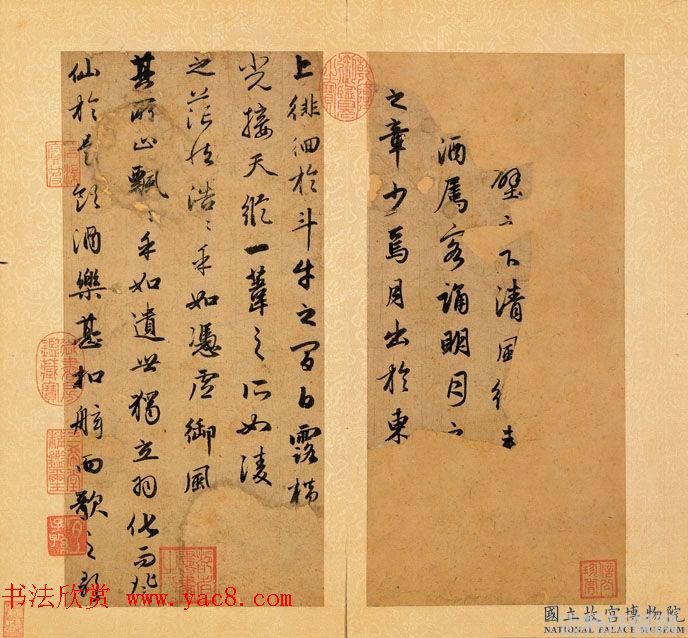 壁之下清風徐来
酒属客誦明月之
之章少焉月出於東
上徘徊於斗牛之間白露橫
光接天縱一葦之所如陵
之茫然浩〻乎如馮虛御風
其所止飄〻乎如遺世獨立羽化而登
仙於是飲酒樂甚扣舷而歌之歌
书法欣赏 www.yac8.com
國立故宮博物院
NATIONAL PALACE MUSEUM